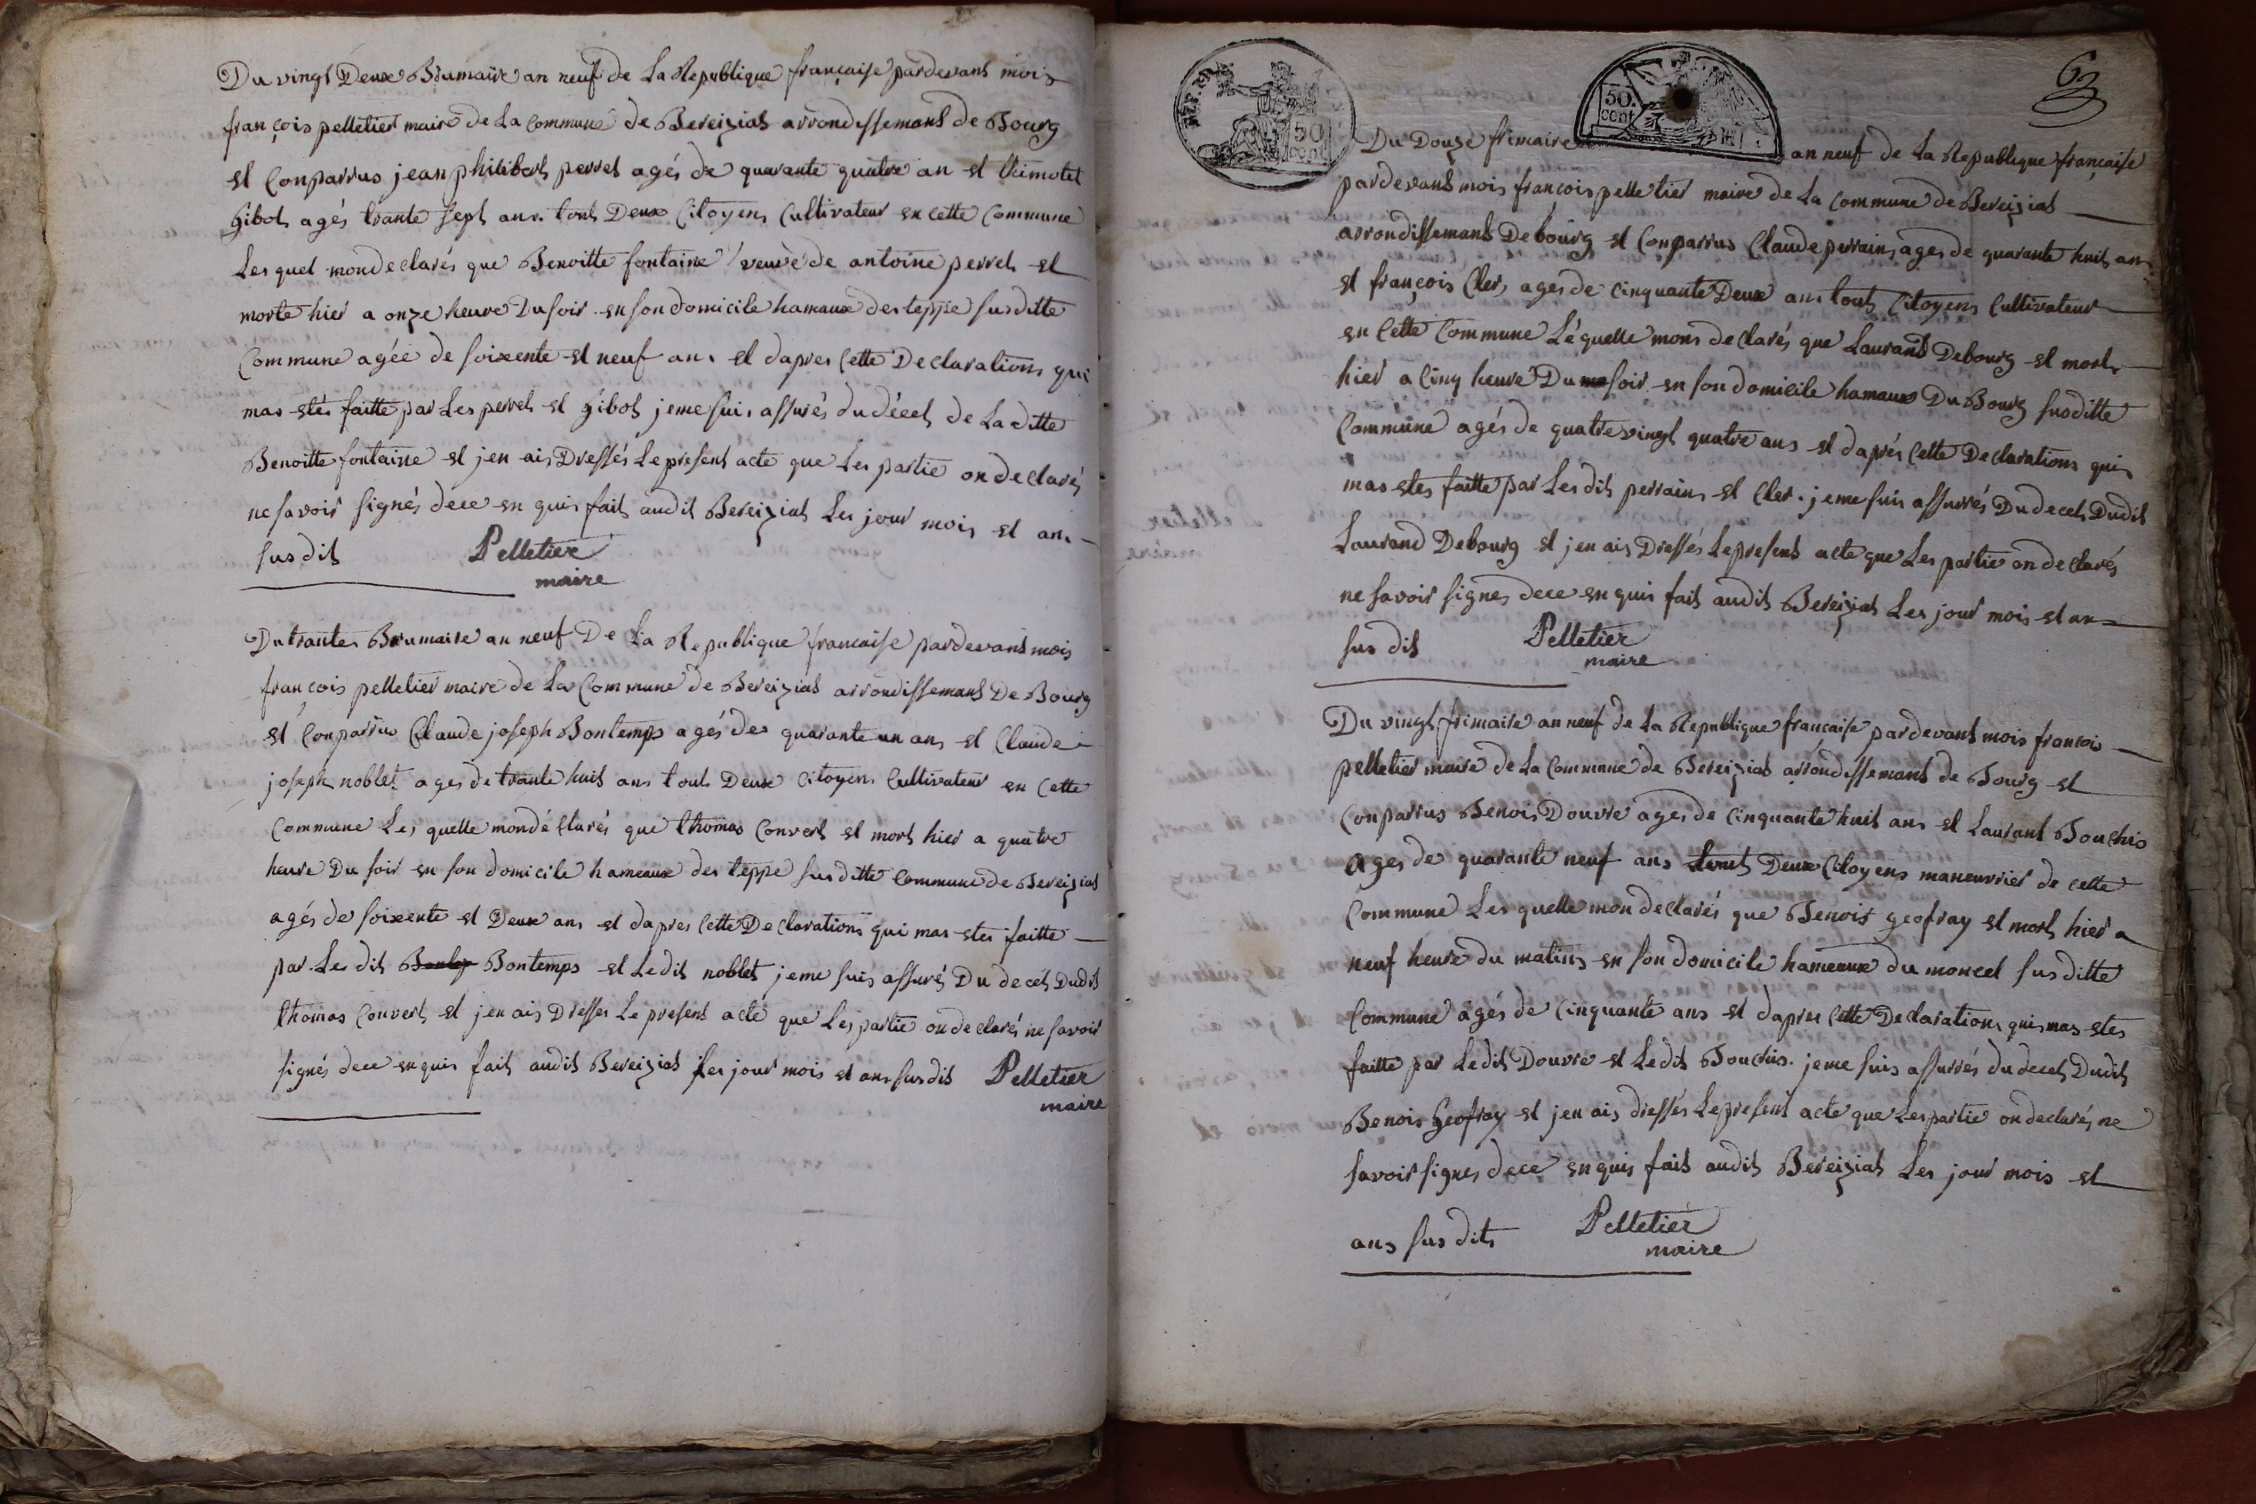 Du vingt Deux Brumaire an neuf de La Republique française pardevant mois
françois pelletier maire de La commune de Bereiziat arrondissemant de Bourg
et Conparrus jean philibert perret agés de quarante quatre an et thimotet
Gibot agés trante sept ans. tout Deux Citoyens Cultivateur en cette Commune
Les quel mon declarés que Benoitte fontaine veuve de antoine perret et
morte hier a onze heure Du soir en son domicile hamaux des teppe susditte
Commune agée de soixente et neuf ans et dapres Cette Declarations qui
mas etés faitte par Les perret et Gibot jeme suis assurés du décet de La ditte
Benoitte fontaine et jen ais Dressés Le present acte que Les partie on declarés
ne savoir signés dece en quis fait audit Bereiziat Les jour mois et ans
susdit Pelletier
maire
Du trante Brumaire an neuf De La Republique francaise pardevant mois
françois pelletier maire de La Commune de Bereiziat arrondissemant De Bourg
et Conparrus Claude joseph Bontemps agés de quarante un ans et Claude
joseph noblet ages de trante huit ans tout Deux citoyens Cultivateur en Cette
Commune Les quelle mon déclarés que thomas Convert et mort hier a quatre
heure Du soir en son domicile hameaux des teppe susditte Commune de Bereiziat
agés de soixente et Deux ans et dapres Cette Declarations qui mas etés faitte
par Les dit Bontemps et Le dit noblet jeme suis assurés Du decet Dudit
thomas Convert et jen ais Dresses Le present acte que Les partie on declarés ne savoir
signés dece en quis fait audit Bereiziat Les jour mois et ans susdit Pelletier
maire
63
REP. FRA.
50 cent
50. cent
Du Douze frimaire an neuf de La Republique française
pardevant mois françois pelletier maire de La Commune de Bereiziat
arrondissemant De bourg et Conparrus Claude perrain ages de quarante huit ans
et françois Cler ages de Cinquante Deux ans tout Citoyens Cultivateur
en Cette Commune Léquelle mons declarés que Laurant Debourg et mort
hier a Cinq heure Du soir en son domicile hamaux Du Bourg susditte
Commune agés de quatrevingt quatre ans et daprés Cette Declarations quis
mas etes faitte par Les dit perrain et Cler. jeme suis assurrés Du decet Dudit
Laurand Debourg et jen ais Dressés Le present acte que Les partie on declarés
ne savoir signes dece en quis fait audit Bereiziat Les jour mois et an
sus dit Pelletier
maire
Du vingt frimaire an neuf de La Republique française pardevant mois francois
pelletier maire de La Commune de Bereiziat arrondissemant de Bourg et
Conparrus Benois Douvre ages de Cinquante huit ans et Laurant Bouchis
Ages de quarante neuf ans tout Deux Citoyens maneuvrier de cette
Commune Les quelle mon declarés que Benois geofray et mort hier a
neuf heure du matins en son domicile hameaux du moncel susditte
Commune agés de Cinquante ans et dapres Cette Declarations quis mas etes
faitte par Ledit Douvre et Ledit Bouchis. jeme suis assurrés du decet Dudit
Benois Geofray et jen ais dressés Le present acte que Les partie on declarés ne
savoir signes dece en quis fait audit Bereiziat Les jour mois et
ans sus dits Pelletier
maire